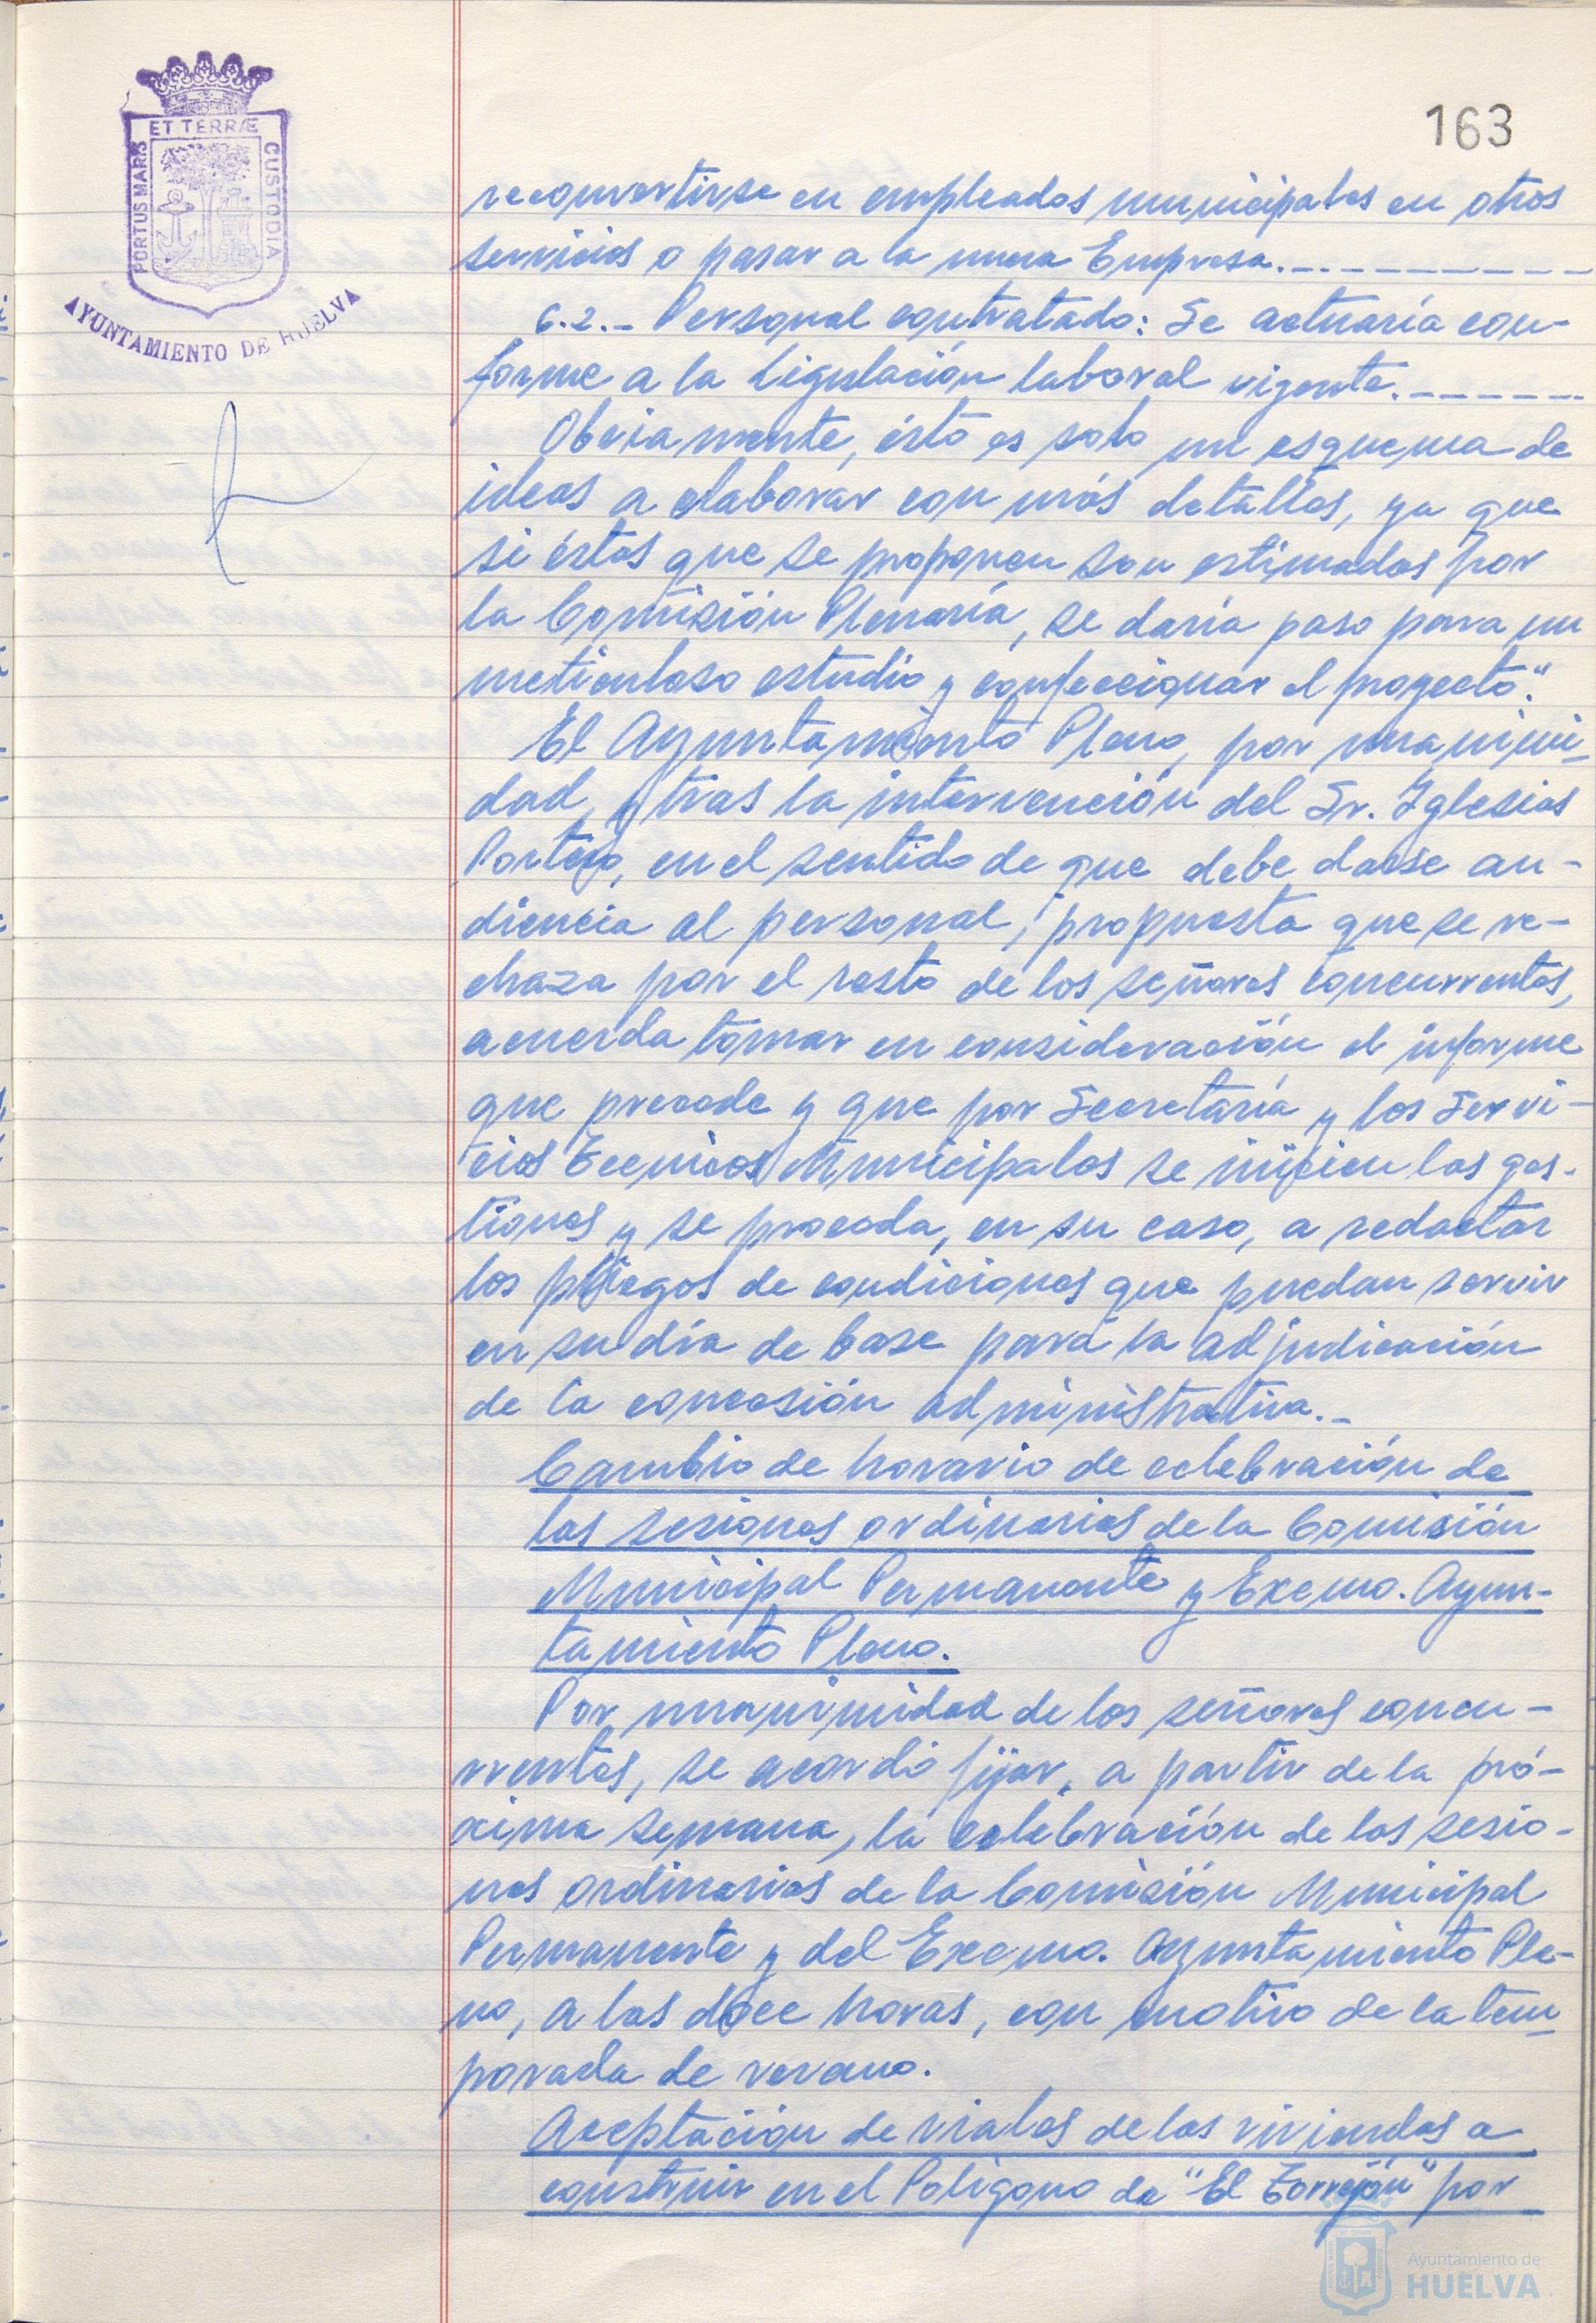 163
ET TERRÆ
PORTUS MARIS
CUSTODIA
AYUNTAMIENTO DE HUELVA
reconvertirse en empleados municipales en otros
servicios o pasar a la nueva Empresa.
6.2.- Personal contratado: Se actuaría con-
forme a la Ligulación laboral vigente.
Obviamente, ésto es solo un esquema de
ideas a elaborar con más detalles, ya que
si éstas que se proponen son estimadas por
la Comisión Plenaria, se daría paso para un
meticuloso estudio y confeccionar el proyecto".
El Ayuntamiento Pleno, por unanimi-
dad, y tras la intervención del Sr. Iglesias
Portero, en el sentido de que debe darse au-
diencia al personal, propuesta que se re-
chaza por el resto de los señores concurrentes,
acuerda tomar en consideración el informe
que precede y que por Secretaría y los Servi-
cios Tecnicos Municipales se inicien las ges-
tiones y se proceda, en su caso, a redactar
los pliegos de condiciones que puedan servir
en su día de base para la adjudicación
de la concesión administrativa.-
Cambio de horario de celebración de
las sesiones ordinarias de la Comisión
Municipal Permanente y Excmo. Ayun-
tamiento Pleno.
Por unanimidad de los señores concu-
rrentes, se acordó fijar, a partir de la pró-
xima semana, la celebración de las sesio-
nes ordinarias de la Comisión Municipal
Permanente y del Excmo. Ayuntamiento Ple-
no, a las doce horas, con motivo de la tem-
porada de verano.
Aceptación de viales de las viviendas a
construir en el Polígono de "El Torrejón" por
Ayuntamiento de
HUELVA